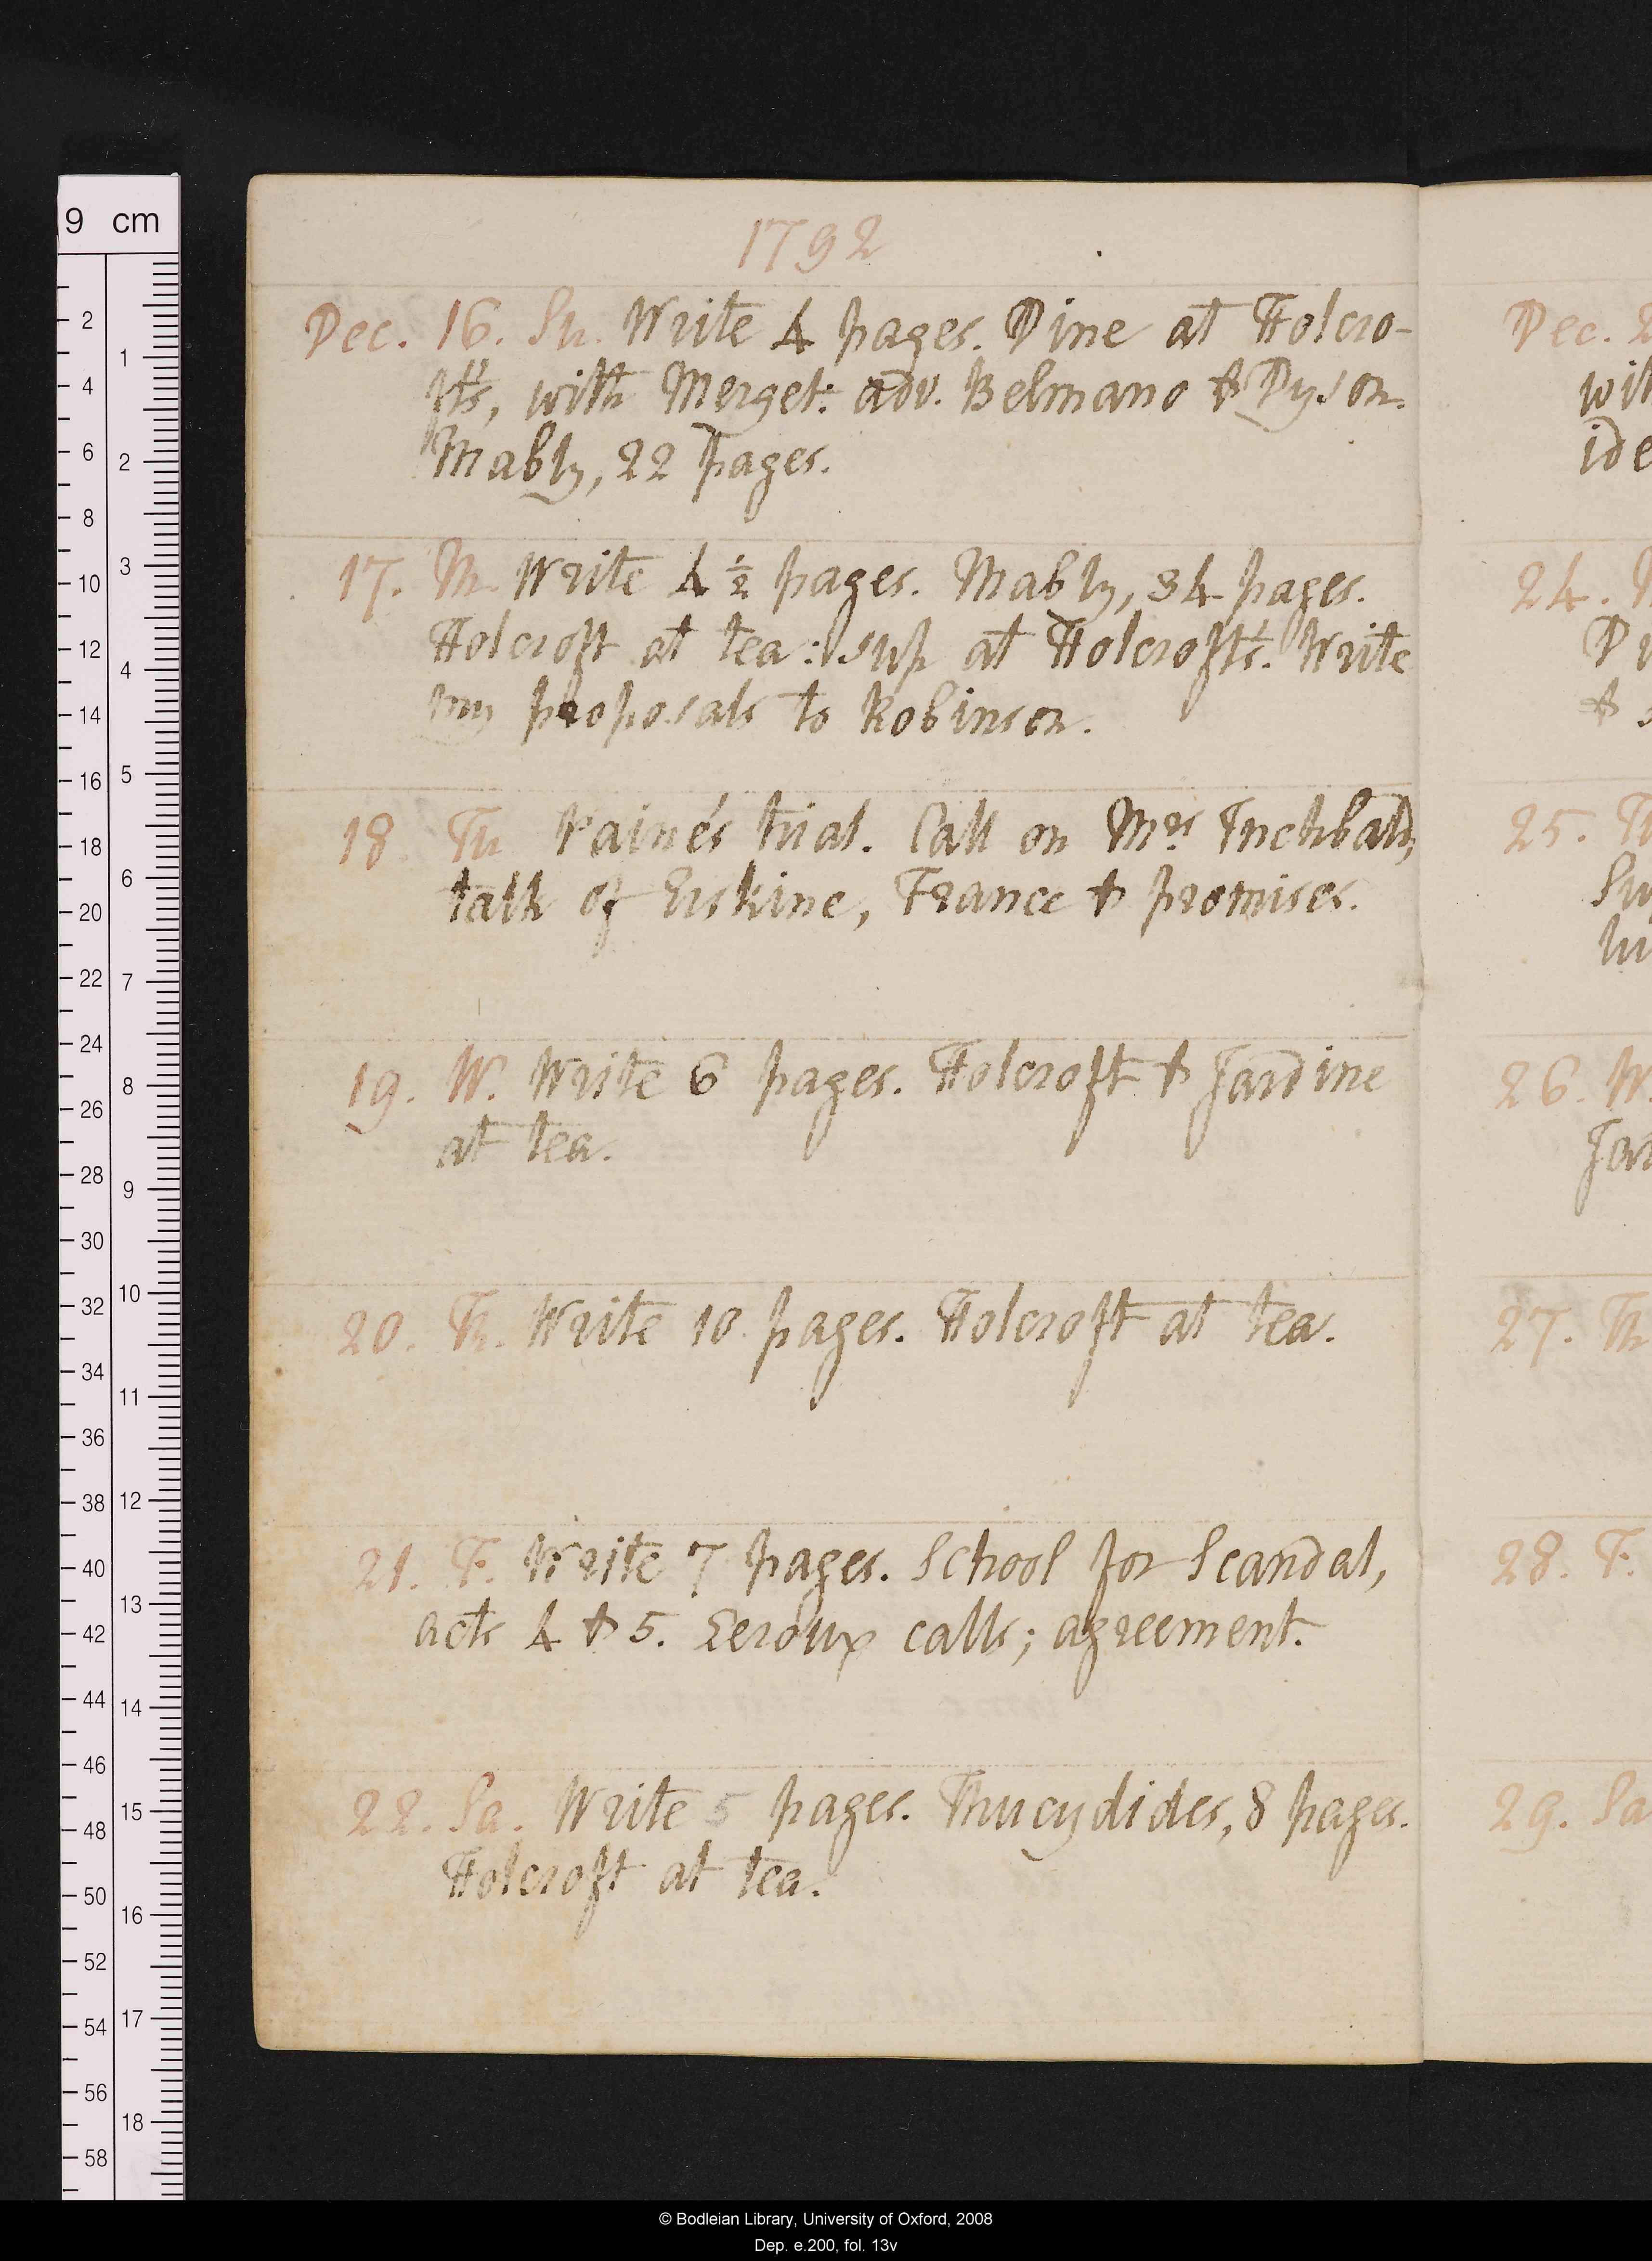 1792
Dec. 16. Su. Write 4 pages. Dine at Holcro-
ft's, with Merget: adv. Belmano & Dyson.
Mably, 22 pages.
17. M. Write 4 ½ pages. Mably, 34 pages.
Holcroft at tea: sup at Holcroft's. Write
my proposals to Robinson.
18 Tu Paine's trial. Call on Mrs Inchbald,
talk of Erskine, France & promises.
19. W. Write 6 pages. Holcroft & Jardine
at tea.
20. Th. Write 10 pages. Holcroft at tea.
21. F. Write 7 pages. School for Scandal,
acts 4 & 5. Leroux calls; agreement.
22. Sa. Write 5 pages. Thucydides, 8 pages.
Holcroft at tea.
Dec. 2
wit
ide
24.
&
25. T
Su
26. W.
Jar
27. Th
28. F.
29. Sa
9 cm
2
4
6
8
10
12
14
16
18
20
22
24
26
28
30
32
34
36
38
40
42
44
46
48
50
52
54
56
58
1
2
3
4
5
6
7
8
9
10
11
12
13
14
15
16
17
18
© Bodleian Library, University of Oxford, 2008
Dep. e.200, fol. 13v